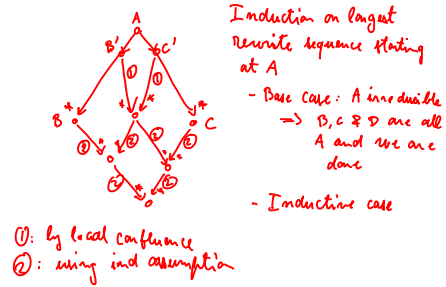 A
B' C'
① ①
* *
* *
B C
② ② ② ②
* *
② ②
*
Induction on longest
rewrite sequence starting
at A
- Base case: A irreducible
=> B, C & D are all
A and we are
done
- Inductive case
①: by local confluence
②: using ind assumption